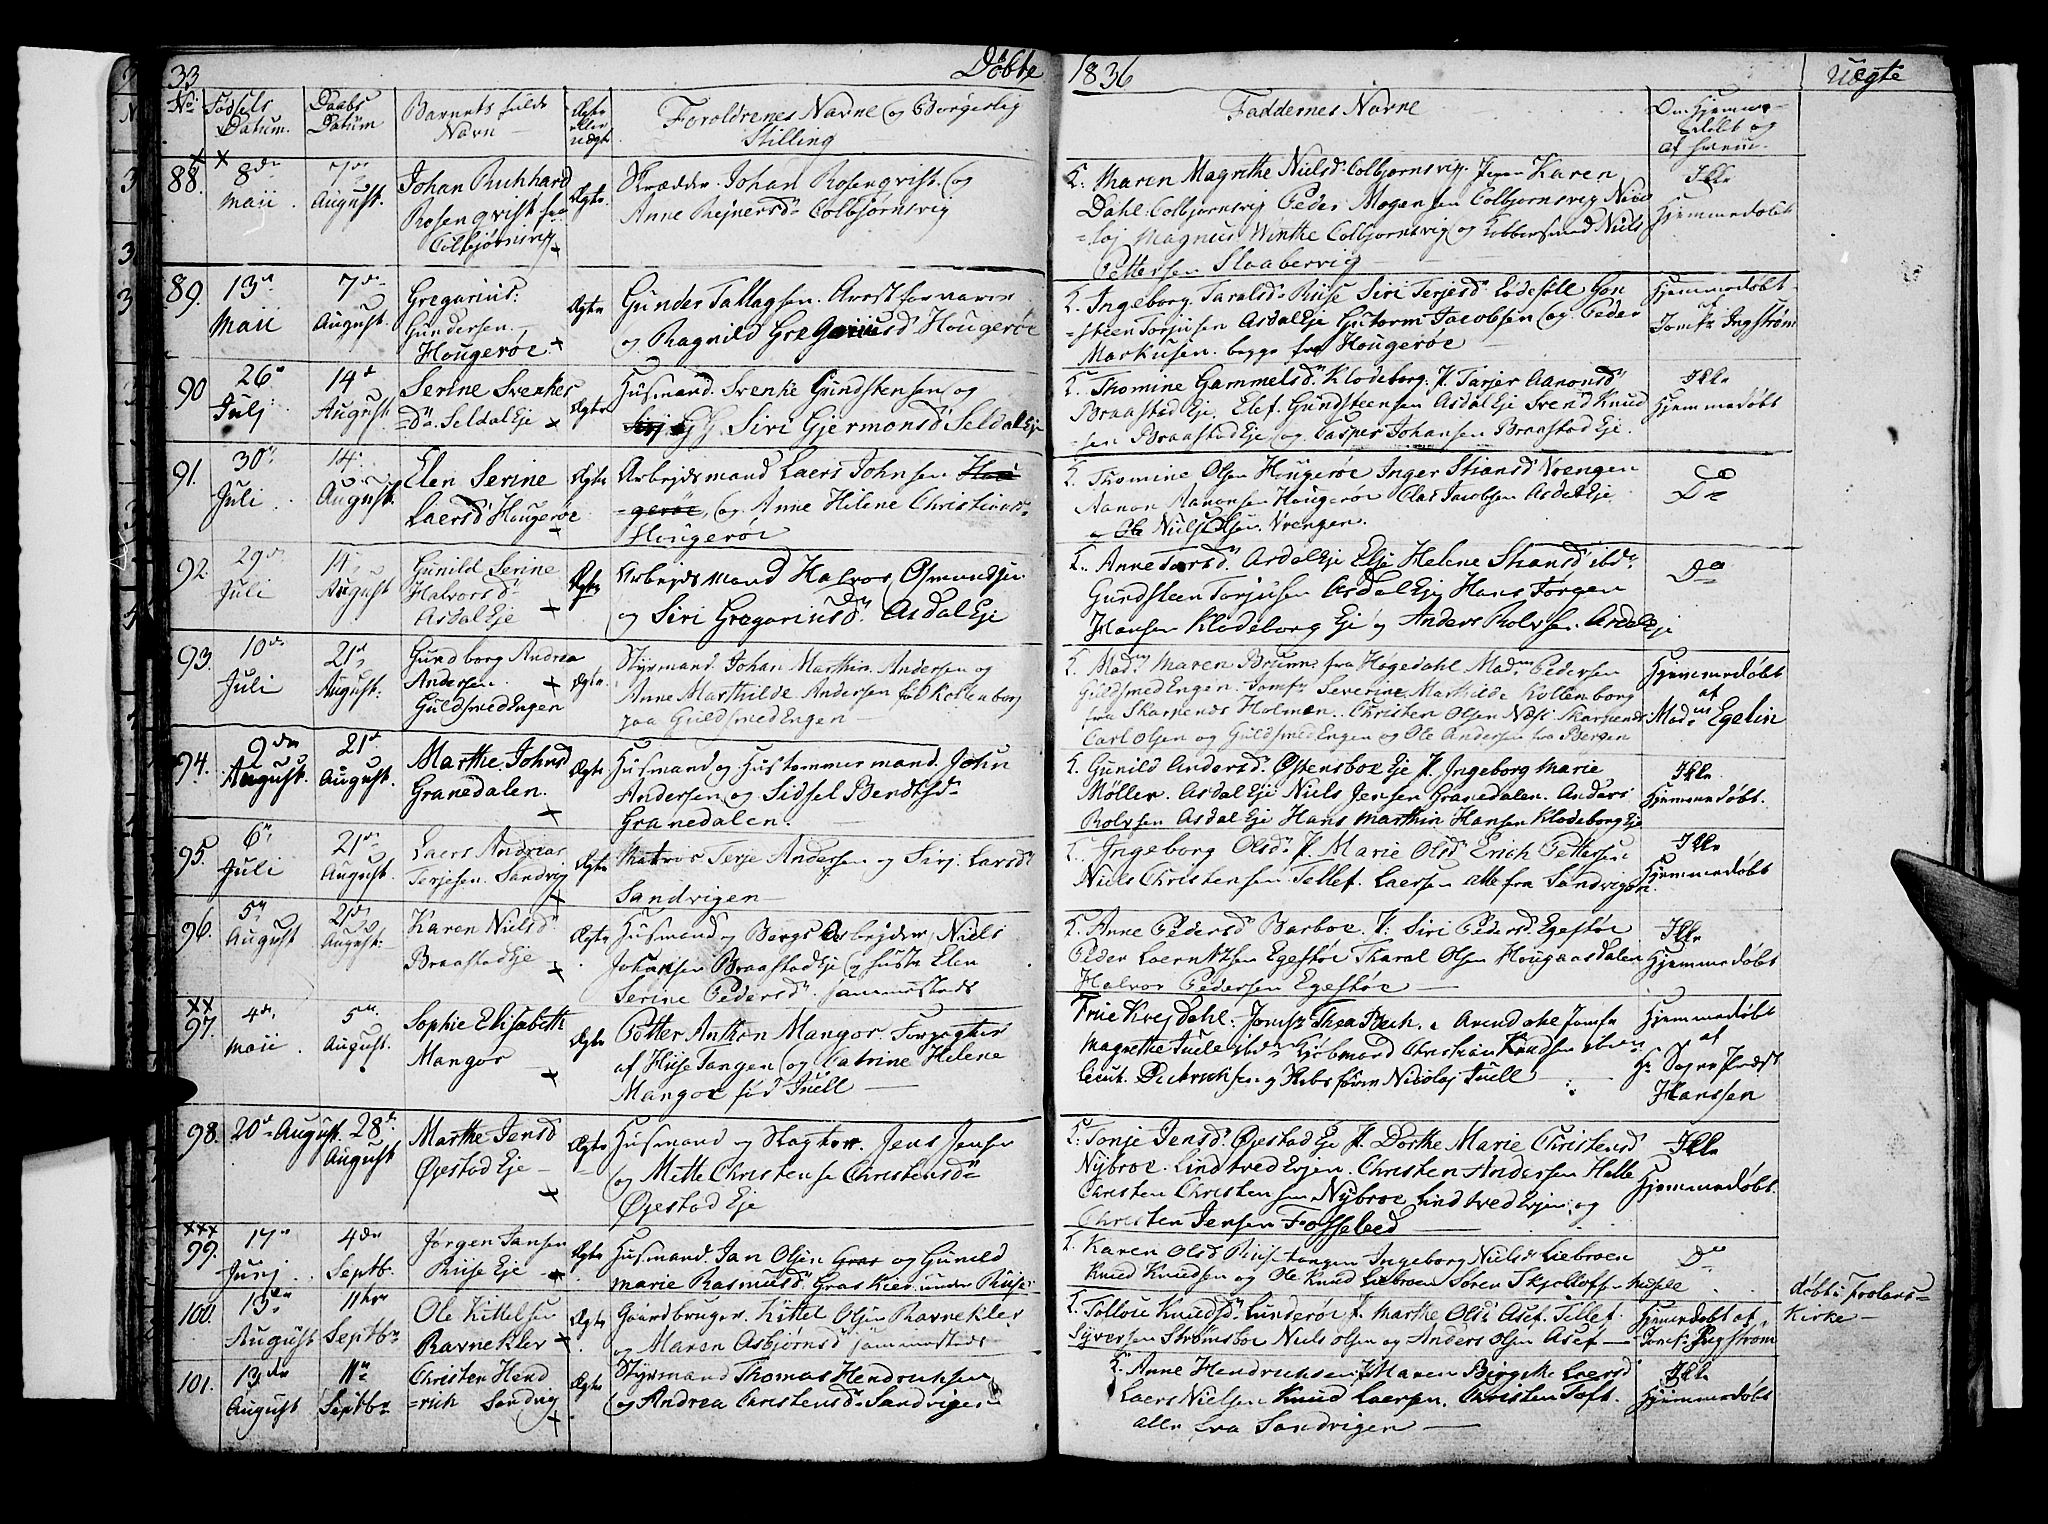 33 Døbte
1836 Uægte
No. Fødsels Datum. Daabs Datum Barnets fulde Navn Ægte eller uægte Foroldrenes Navne og Borgerlig Stilling
Faddernes Navne Om Hjemmedøbt og af hvem.
88. 8de Maii. 7de August. Johan
Rosenqvist
Colbjørnsvig
Ægte
Skrædder Johan Rosenqvist og
Anne Rejnersd. Colbjørnsvig
Maren Magrethe Nielsd. Colbjornsvig. Karen
Dahl. Colbjornsvig Peder Mogensen Colbjornsvig Nico
=laj Magnus Winthe Colbjornsvig og Kobbersmed Niels
Pettersen Slaabervig
Ikke
Hjemmedøbt
89. 13de Maii 7de August. Gregarius
Gundersen
Hougerøe
Ægte
Gunder Tallagsen. Arrest forvarer
og Ragnild Gregariusd Hougerøe
Ingeborg Taralsd. Riise Siri Terjesd. Gon
=steen Torjusen AsdalEje Gutorm Jacobsen og Peder
Markusen. begge fra Hougerøe
Hjemmedøbt
af
Jomfr Ingstrøm
90 26de Julj 14d August. Serine Svenkes
=D. SeldalEje
Ægte
Husmand. Svenke Gundstensen og
Siri Gjermonsd SeldalEje
Thomine Gammelsd. Klodeborg. Tarjer Aaronsd
BraastadEje, Elef. Gundsteensen AsdalEje Svend Knud
=sen BraastadEje og Casper Johansen BraastadEje.
Ikke
Hjemmedøbt
91. 30te Juli. 14. August. Elen Serine
Laersd Hougerøe
Ægte
Arbejdsmand Laers Johnsen Hou
=gerøe, og Anne Helene Christiansd.
Hougerøe
Thomine Olsen Hougerøe Inger Stiansd Vrengen
Aanon Aanonsen Hougerøe Clas Jacobsen AsdalEje
Niels Olsen. Vrengen.
Do
92. 29de Juli 14. August Gunild Serine
Halvorsd
AsdalEje
Ægte
Arbejdsmand Halvor Osmundsen
og Siri Gregariusd. AsdalEje
Anne Larsd. AsdalEje Else Helene Stiansd ibd.
Gundsteen Torjusen AsdalEje Hans Jørgen
Hansen Klodeborg Eje og Anders Rolvsen. AsdalEje
Do
93. 10de Juli 21de August. Gundborg Andrea
Andersen.
GuldsmedEngen
Ægte.
Styrmand. Johan Marthin. Andersen og
Anne Marthilde Andersen fød Kollenborg
paa GuldsmedEngen
Mad. Maren Bruun fra Høgedahl Mad. Pedersen
GuldsmedEngen. Jomfr Severine Marthilde Kollenborg
fra Skarpenes Holmen. Christen Olsen Næs. Skarpenes
Carl Olsen og GuldsmedEngen og Ole Andersen fra Bergen
Hjemmedøbt
af
Mad. Egelin
94. 9de August. 21d August. Marthe Johnsd
Granedalen.
Ægte
Husmand og Hustømmermand. John
Andersen og Sidsel Bendtsd.
Granedalen.
Gunild Andersd. OstensboeEje Ingeborg Marie
Möller. AsdalEje Niels Jensen Granedalen. Anders
Rolvsen AsdalEje Hans Marthin Hansen KlodeborgEje
Ikke
Hjemmedøbt.
95. 6te Juli 21de August. Laers Andreas
Terjesen. Sandvig
Ægte
Matros Terje Andersen og Sirj. Larsd.
Sandvigen
Ingeborg Olsd. Marie Olsd Erich Pettersen
Niels Christensen. Tellef. Laersen alle fra Sandvigen.
Ikke
Hjemmedøbt
96. 5te August 21de August. Karen Nielsd
BraastadEje
Ægte
Husmand og Bergs Arbejder Niels
Johansen BraastadEje og Elen
Serine Pedersd. sammesteds
Anne Pedersd Barboe. Siri Pedersd. Egestøe
Peder Laerntzsen Egestøe Tharal Olsen Hougaasdalen
Halvor Pedersen Egestøe
Ikke
Hjemmedøbt
97. 4de Maii. 5te August. Sophie Elisabeth
Mangor
Ægte
Petter Anthon Mangor. Forpagter
af HüseTangen og Catrine Helene
Mangor fød Juell
Frue Krejdahl. Jomfr Thea Arendahl Jomfr
Magrethe Juell Kjøbmand Christian Knudsen
Leeut. Diderichsen og Skibsfører Nicolaj Juell
Hjemmedøbt
af
Hr Sogne Præst
Hanssen
98. 20de August. 28de August Marthe Jensd
ØjestadEje
Ægte
Husmand og Slagter. Jens Jensen
og Mette Christense Christensd
ØjestadEje
Tonje Jensd. ØjestadEje Dorthe Marie Christensd
Nybroe. LindtvedEjen. Christen Andersen Helle
Christen Christensen Nybroe LindtvedEjen og
Christen Jensen Fosseleed
Ikke
Hjemmedøbt.
99. 17de Junj. 4de Septb. Jørgen Jansen
RiiseEje
Ægte
Husmand. Jan Olsen Gras og Gunild
marie Rasmusd. GrasKied under Riise
Karen Olsd Riisetangen Ingeborg Nielsd Liebroen
Knud Knudsen og Ole Knud Liebroen Søren
Do
100. 13de August 11te Septbr Ole Kittelsen
Ravnekler
Ægte
Gaardbruger. Kittel Olsen Ravnekler
og Maren Asbjørnsd sammesteds
Tollow Knudsd. Lunderøe Marthe Olsd Asef. Tellef
Syversen Strømsboe Niels Olsen og Anders Olsen Asef
Hjemmedøbt af
Jomf: Ingstrøm
døbt i Froland
Kirke
101. 13de August 11te Septbr Christen Hend
=rich Sandvig
Ægte
Styrmand Thomas Hendrichsen
og Andrea Christensd. Sandvigen
Anne Hendrichsen Maren Birgithe Laersd
Laers Nielsen Knud Laersen. Christen Toft.
alle fra Sandvigen
Ikke
Hjemmedøbt